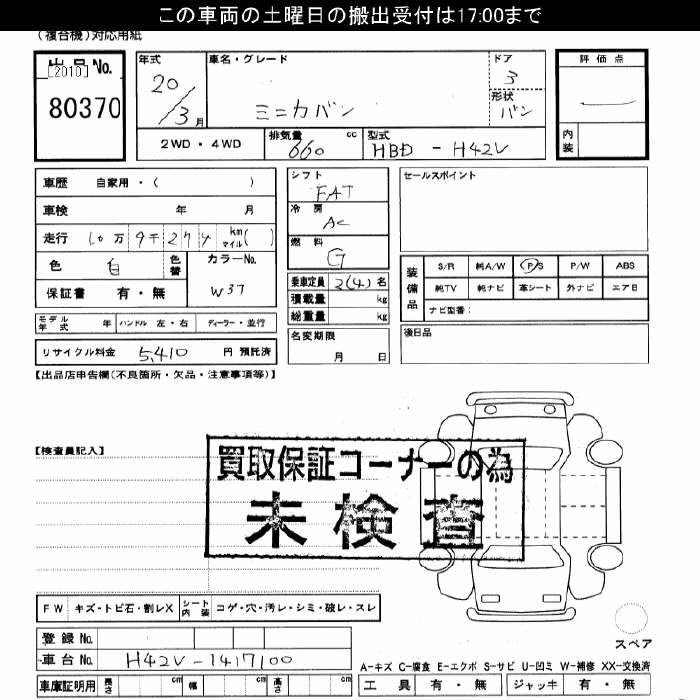 この車両の土曜日の搬出受付は17:00まで
(複合機)対応用紙
出品No.
[2010]
80370
年式
20/3月
車名・グレード
ミニカバン
ドア
3
形状
バン
評価点
内装
2WD・4WD
排気量 660 cc
型式 HBD - H42V
車歴 自家用・( )
車検 年 月
走行 10万9千274 km マイル( )
色 白 色替
カラーNo. W37
保証書 有・無
モデル年式 年 ハンドル 左・右 ディーラー・並行
リサイクル料金 5,410 円 預託済
シフト FAT
冷房 AC
燃料 G
乗車定員 2(4)名
積載量 kg
総重量 kg
名変期限 月 日
セールスポイント
装備品
S/R 純A/W P/S P/W ABS
純TV 純ナビ 革シート 外ナビ エアB
ナビ型番:
後日品
【出品店申告欄(不良箇所・欠品・注意事項等)】
【検査員記入】
買取保証コーナーの為
未検査
FW キズ・トビ石・割レX シート内装 コゲ・穴・汚レ・シミ・破レ・スレ
登録No.
車台No. H42V-1417100
車庫証明用 長さ cm 幅 cm 高さ cm
スペア
A-キズ C-腐食 E-エクボ S-サビ U-凹ミ W-補修 XX-交換済
工具 有・無 ジャッキ 有・無